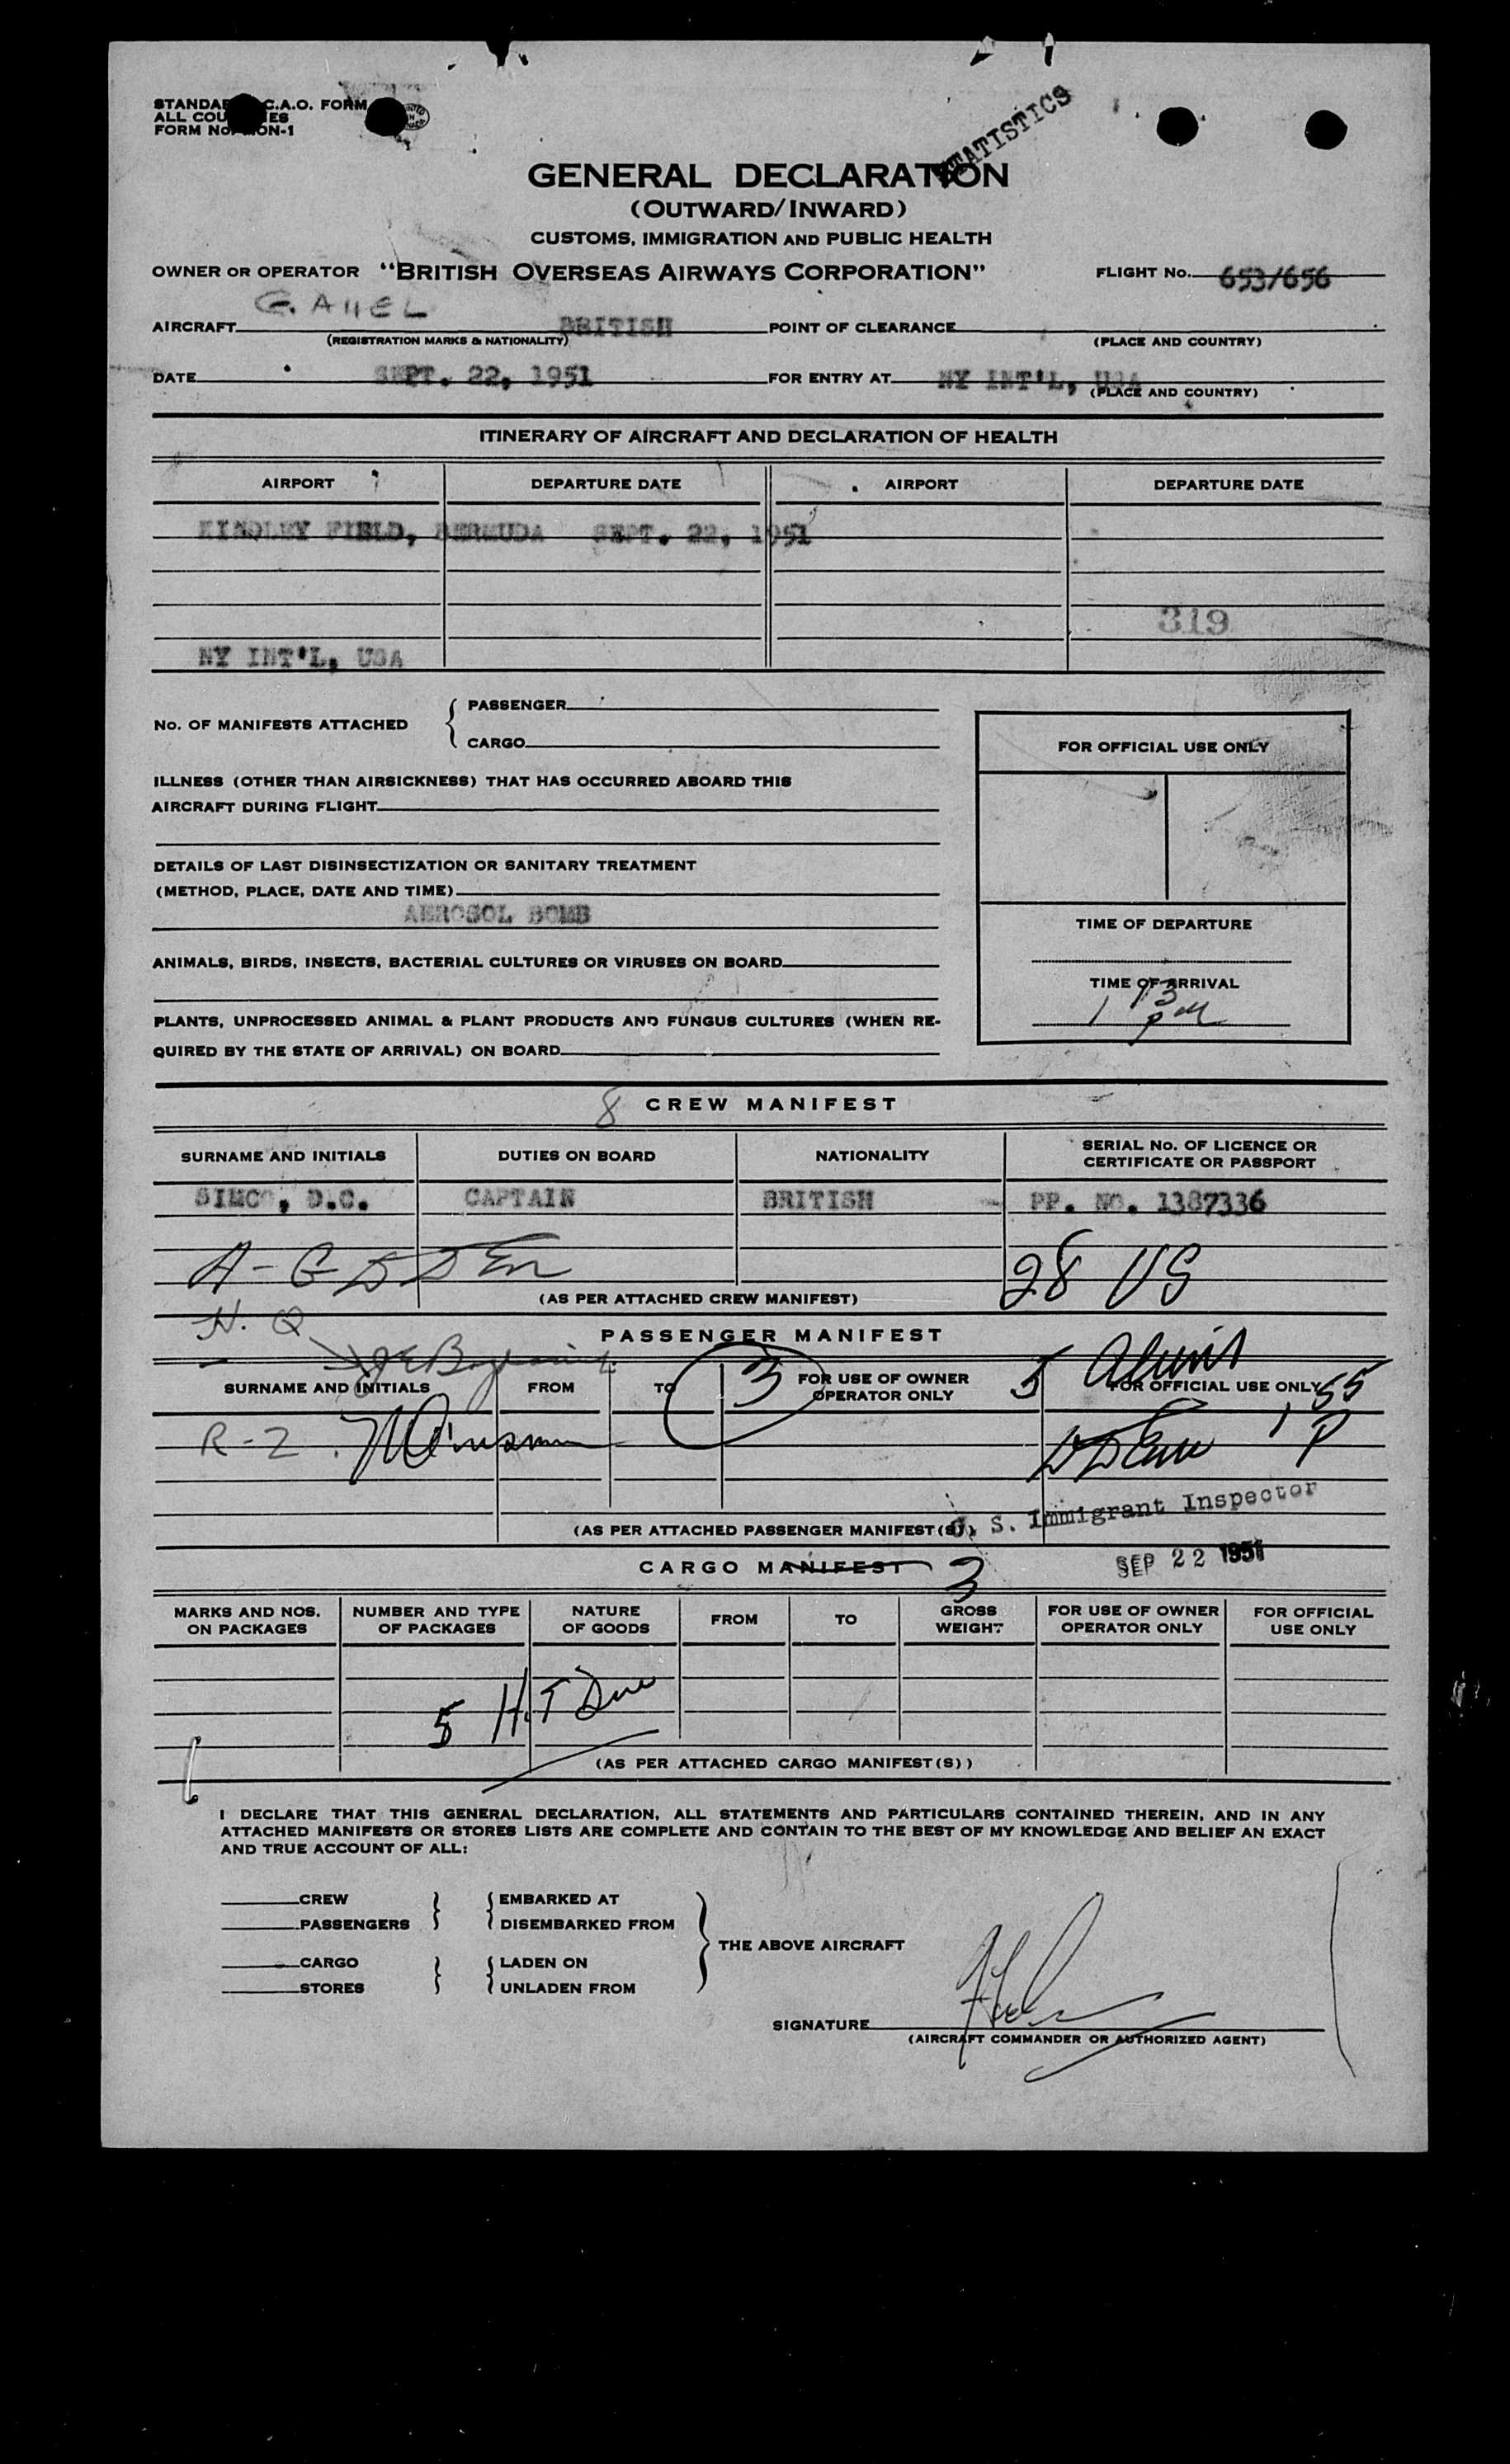 C.A.O. FORM
ALL
FORM No. ON-1
STATISTICS
GENERAL DECLARATION
(OUTWARD/INWARD)
CUSTOMS, IMMIGRATION AND PUBLIC HEALTH
OWNER OR OPERATOR "BRITISH OVERSEAS AIRWAYS CORPORATION" FLIGHT No. 653/656
G. AHEL
AIRCRAFT BRITISH POINT OF CLEARANCE
(REGISTRATION MARKS & NATIONALITY) (PLACE AND COUNTRY)
DATE SEPT. 22, 1951 FOR ENTRY AT NY INT'L, USA
(PLACE AND COUNTRY)
ITINERARY OF AIRCRAFT AND DECLARATION OF HEALTH
AIRPORT DEPARTURE DATE AIRPORT DEPARTURE DATE
KINDLEY FIELD, BERMUDA SEPT. 22, 1951
319
NY INT'L, USA
No. OF MANIFESTS ATTACHED { PASSENGER
CARGO
FOR OFFICIAL USE ONLY
ILLNESS (OTHER THAN AIRSICKNESS) THAT HAS OCCURRED ABOARD THIS
AIRCRAFT DURING FLIGHT
DETAILS OF LAST DISINSECTIZATION OR SANITARY TREATMENT
(METHOD, PLACE, DATE AND TIME)
AEROSOL BOMB
TIME OF DEPARTURE
ANIMALS, BIRDS, INSECTS, BACTERIAL CULTURES OR VIRUSES ON BOARD
TIME OF ARRIVAL
1 13 PM
PLANTS, UNPROCESSED ANIMAL & PLANT PRODUCTS AND FUNGUS CULTURES (WHEN RE-
QUIRED BY THE STATE OF ARRIVAL) ON BOARD
8 CREW MANIFEST
SURNAME AND INITIALS DUTIES ON BOARD NATIONALITY SERIAL No. OF LICENCE OR
CERTIFICATE OR PASSPORT
SIMCO, D.C. CAPTAIN BRITISH PP. NO. 1387336
A - G 28 US
(AS PER ATTACHED CREW MANIFEST)
H. Q
PASSENGER MANIFEST
5
SURNAME AND INITIALS FROM TO 3 FOR USE OF OWNER
OPERATOR ONLY FOR OFFICIAL USE ONLY
1 55 P
R - Z
(AS PER ATTACHED PASSENGER MANIFEST(S)) U. S. Immigrant Inspector
CARGO MANIFEST 3 SEP 22 1951
MARKS AND NOS.
ON PACKAGES NUMBER AND TYPE
OF PACKAGES NATURE
OF GOODS FROM TO GROSS
WEIGHT FOR USE OF OWNER
OPERATOR ONLY FOR OFFICIAL
USE ONLY
5 H.T
(AS PER ATTACHED CARGO MANIFEST(S))
I DECLARE THAT THIS GENERAL DECLARATION, ALL STATEMENTS AND PARTICULARS CONTAINED THEREIN, AND IN ANY
ATTACHED MANIFESTS OR STORES LISTS ARE COMPLETE AND CONTAIN TO THE BEST OF MY KNOWLEDGE AND BELIEF AN EXACT
AND TRUE ACCOUNT OF ALL:
CREW EMBARKED AT
PASSENGERS DISEMBARKED FROM
THE ABOVE AIRCRAFT
CARGO LADEN ON
STORES UNLADEN FROM
SIGNATURE
(AIRCRAFT COMMANDER OR AUTHORIZED AGENT)